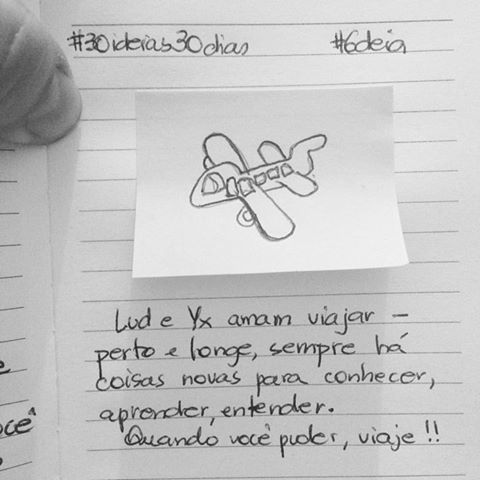 #30ideias30dias #6deia
Lud e Yx amam viajar –
perto e longe, sempre há
coisas novas para conhecer,
aprender, entender.
Quando você puder, viaje!!
ocê